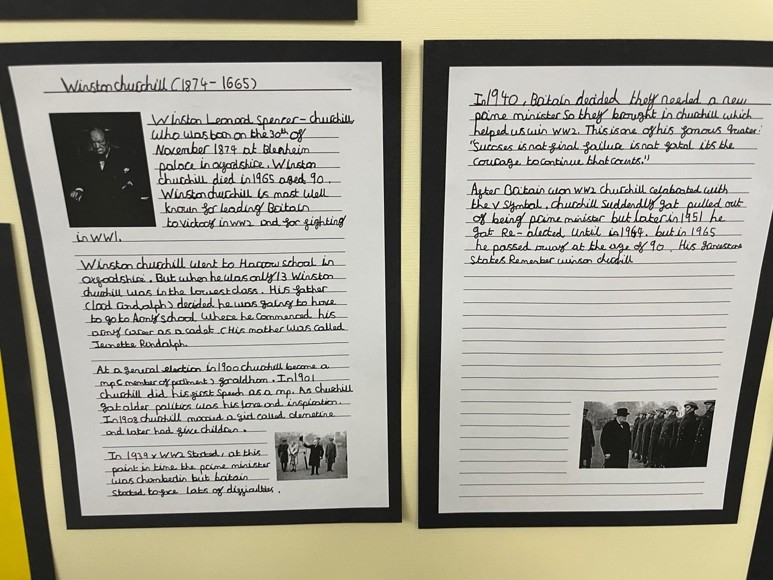 Winston churchill (1874-1665)
Winston Leonard Spencer-churchill
Who was born on the 30th of
November 1874 at Blenheim
palace in oxfordshire. Winston
churchill died in 1965 aged 90.
Winston churchill is most well
known for leading Britain
to victory in ww2 and for fighting
in WW1.
Winston churchill went to Harrow school in
oxfordshire. But when he was only 13 Winston
churchill was in the lowest class. His father
(lord randolph) decided he was going to have
to go to Army school where he commenced his
army career as a cadet. (His mother was called
Jeanette Randolph.
At a general election in 1900 churchill became a
mp (member of parliment)
In 1901
churchill did his first speech as a mp. As churchill
got older politics was his love and inspiration.
In 1908 churchill married a girl called clemetine
and later had five children.
In 1939 WW2 started, at this
point in time the prime minister
was chamberlin but britain
started to face lots of difficulties.
In 1940, Britain decided they needed a new
prime minister so they brought in churchill which
helped us win WW2. This is one of his famous
"Success is not final failure is not fatal its the
courage to continue that counts."
After Britain won WW2 churchill celebrated with
the V symbol. churchill suddendly got pulled out
of being prime minister but later in 1951 he
got Re-elected until in 1964. but in 1965
he passed away at the age of 90. His
States Remember winson churchill